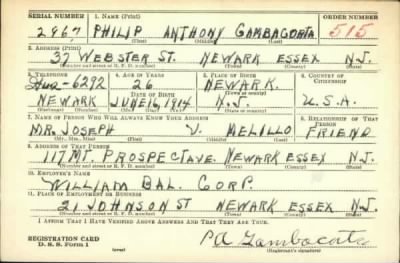 SERIAL NUMBER 1. NAME (Print) ORDER NUMBER
2967 PHILIP ANTHONY GAMBACORTA 515
(First) (Middle) (Last)
2. ADDRESS (Print)
37 WEBSTER ST. NEWARK ESSEX N.J.
(Number and street or R. F. D. number) (Town) (County) (State)
3. TELEPHONE 4. AGE IN YEARS 5. PLACE OF BIRTH 6. COUNTRY OF CITIZENSHIP
Hu2-6292 26 NEWARK
DATE OF BIRTH
NEWARK JUNE 16, 1914 N.J. U.S.A.
7. NAME OF PERSON WHO WILL ALWAYS KNOW YOUR ADDRESS 8. RELATIONSHIP OF THAT PERSON
MR. JOSEPH V. MELILLO FRIEND
(Mr., Mrs., Miss) (First) (Middle) (Last)
9. ADDRESS OF THAT PERSON
117 MT. PROSPECT AVE. NEWARK ESSEX N.J.
(Number and street or R. F. D. number) (Town) (County) (State)
10. EMPLOYER'S NAME
WILLIAM BAL. CORP.
11. PLACE OF EMPLOYMENT OR BUSINESS
21 JOHNSON ST NEWARK ESSEX N.J.
(Number and street or R. F. D. number) (Town) (County) (State)
I AFFIRM THAT I HAVE VERIFIED ABOVE ANSWERS AND THAT THEY ARE TRUE.
REGISTRATION CARD
D. S. S. Form 1 (over) P A Gambacorta
(Registrant's signature)